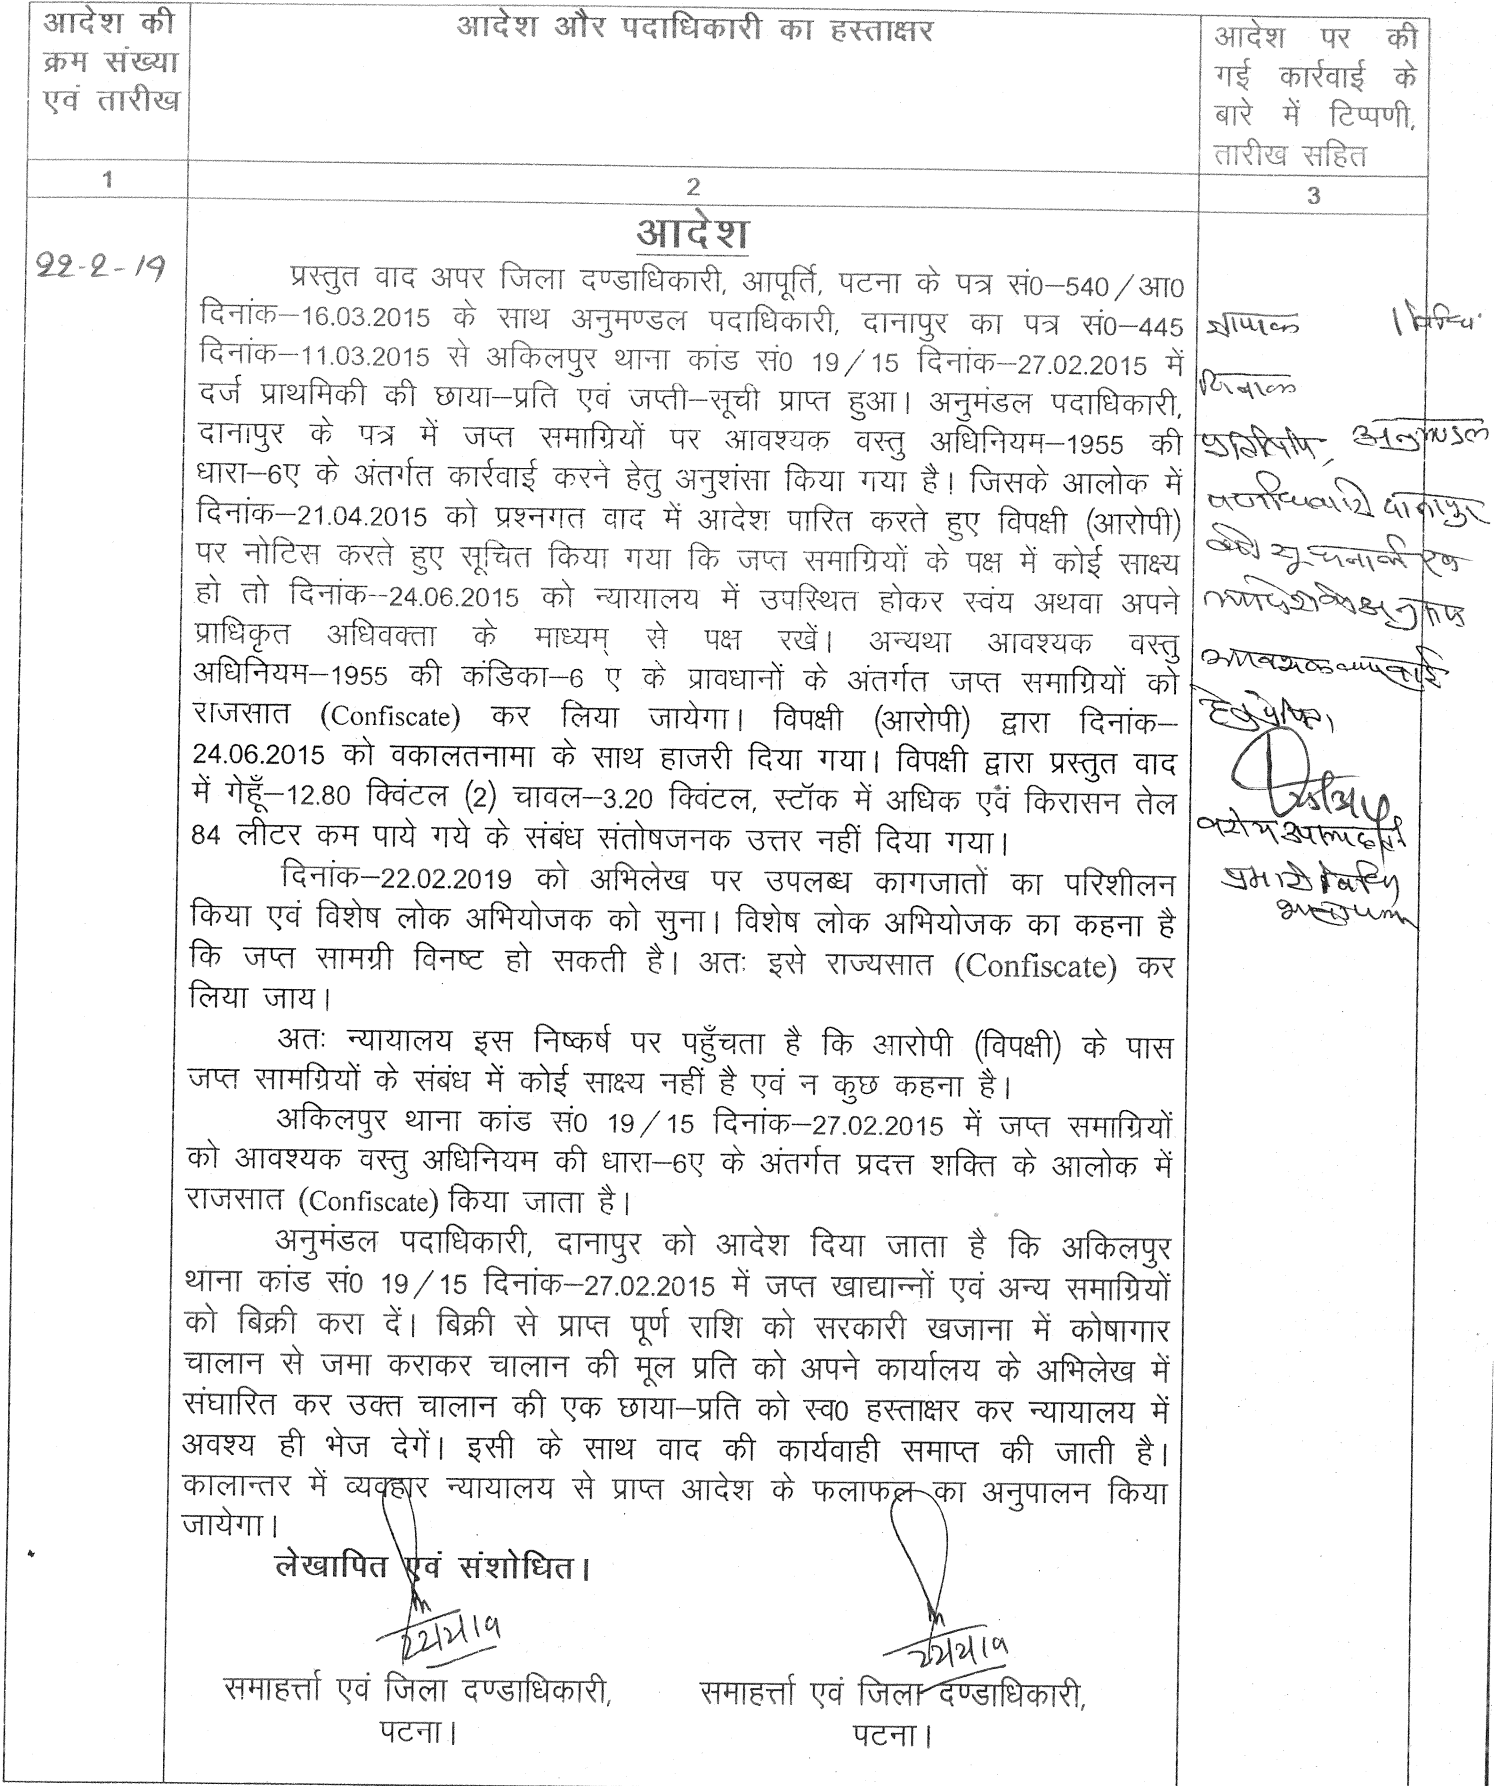 आदेश की
क्रम संख्या
एवं तारीख
आदेश और पदाधिकारी का हस्ताक्षर
आदेश पर की
गई कार्रवाई के
बारे में टिप्पणी,
तारीख सहित
1
2
3
22-2-19
आदेश
प्रस्तुत वाद अपर जिला दण्डाधिकारी, आपूर्ति, पटना के पत्र सं0–540/आ0
दिनांक–16.03.2015 के साथ अनुमण्डल पदाधिकारी, दानापुर का पत्र सं0–445
दिनांक–11.03.2015 से अकिलपुर थाना कांड सं0 19/15 दिनांक–27.02.2015 में
दर्ज प्राथमिकी की छाया–प्रति एवं जप्ती–सूची प्राप्त हुआ। अनुमंडल पदाधिकारी,
दानापुर के पत्र में जप्त समाग्रियों पर आवश्यक वस्तु अधिनियम–1955 की
धारा–6ए के अंतर्गत कार्रवाई करने हेतु अनुशंसा किया गया है। जिसके आलोक में
दिनांक–21.04.2015 को प्रश्नगत वाद में आदेश पारित करते हुए विपक्षी (आरोपी)
पर नोटिस करते हुए सूचित किया गया कि जप्त समाग्रियों के पक्ष में कोई साक्ष्य
हो तो दिनांक--24.06.2015 को न्यायालय में उपस्थित होकर स्वंय अथवा अपने
प्राधिकृत अधिवक्ता के माध्यम् से पक्ष रखें। अन्यथा आवश्यक वस्तु
अधिनियम–1955 की कंडिका–6 ए के प्रावधानों के अंतर्गत जप्त समाग्रियों को
राजसात (Confiscate) कर लिया जायेगा। विपक्षी (आरोपी) द्वारा दिनांक–
24.06.2015 को वकालतनामा के साथ हाजरी दिया गया। विपक्षी द्वारा प्रस्तुत वाद
में गेहूँ–12.80 क्विंटल (2) चावल–3.20 क्विंटल, स्टॉक में अधिक एवं किरासन तेल
84 लीटर कम पाये गये के संबंध संतोषजनक उत्तर नहीं दिया गया।
दिनांक–22.02.2019 को अभिलेख पर उपलब्ध कागजातों का परिशीलन
किया एवं विशेष लोक अभियोजक को सुना। विशेष लोक अभियोजक का कहना है
कि जप्त सामग्री विनष्ट हो सकती है। अतः इसे राज्यसात (Confiscate) कर
लिया जाय।
अतः न्यायालय इस निष्कर्ष पर पहुँचता है कि आरोपी (विपक्षी) के पास
जप्त सामग्रियों के संबंध में कोई साक्ष्य नहीं है एवं न कुछ कहना है।
अकिलपुर थाना कांड सं0 19/15 दिनांक–27.02.2015 में जप्त समाग्रियों
को आवश्यक वस्तु अधिनियम की धारा–6ए के अंतर्गत प्रदत्त शक्ति के आलोक में
राजसात (Confiscate) किया जाता है।
अनुमंडल पदाधिकारी, दानापुर को आदेश दिया जाता है कि अकिलपुर
थाना कांड सं0 19/15 दिनांक–27.02.2015 में जप्त खाद्यान्नों एवं अन्य समाग्रियों
को बिक्री करा दें। बिक्री से प्राप्त पूर्ण राशि को सरकारी खजाना में कोषागार
चालान से जमा कराकर चालान की मूल प्रति को अपने कार्यालय के अभिलेख में
संघारित कर उक्त चालान की एक छाया–प्रति को स्व0 हस्ताक्षर कर न्यायालय में
अवश्य ही भेज देगें। इसी के साथ वाद की कार्यवाही समाप्त की जाती है।
कालान्तर में व्यवहार न्यायालय से प्राप्त आदेश के फलाफल का अनुपालन किया
जायेगा।
लेखापित एवं संशोधित।
समाहर्त्ता एवं जिला दण्डाधिकारी,
पटना।
समाहर्त्ता एवं जिला दण्डाधिकारी,
पटना।
ज्ञापांक /विधि
दिनांक
प्रतिलिपि, अनुमण्डल
पदाधिकारी दानापुर
को सूचनार्थ एवं
आवश्यक कार्रवाई
हेतु प्रेषित।